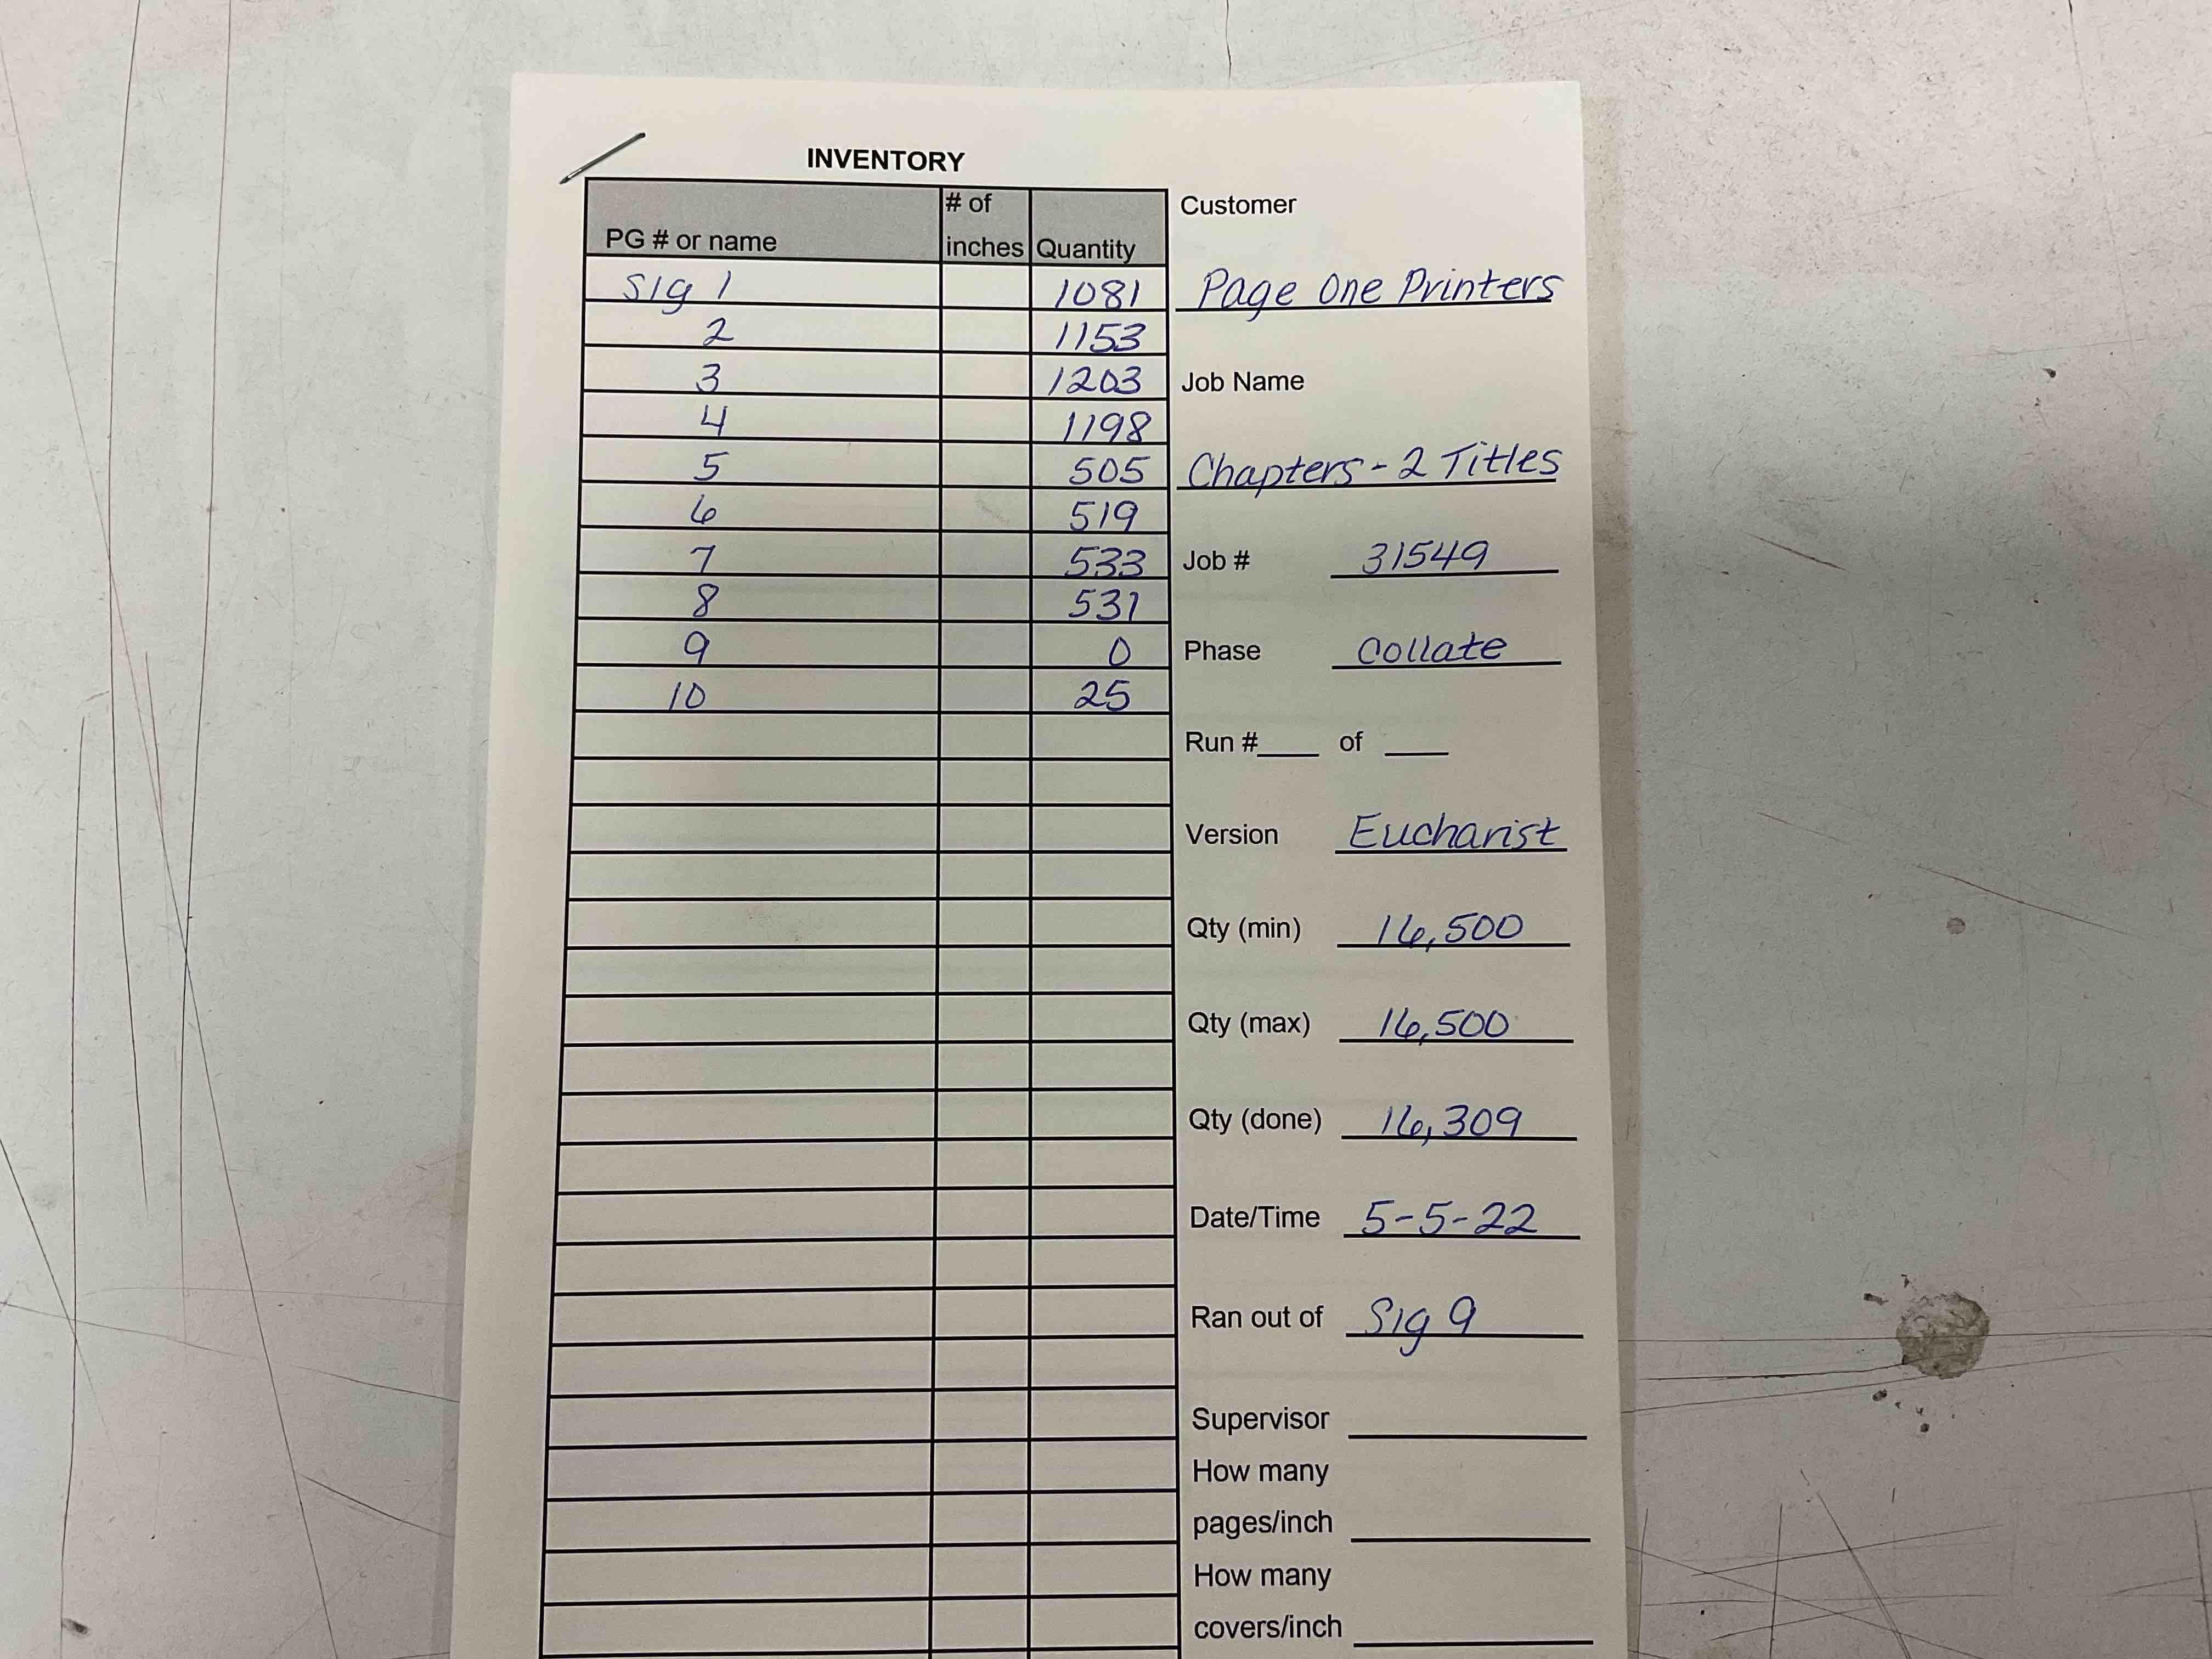 INVENTORY
PG # or name
# of
inches
Quantity
Sig 1 1081
2 1153
3 1203
4 1198
5 505
6 519
7 533
8 531
9 0
10 25
Customer
Page One Printers
Job Name
Chapters - 2 Titles
Job # 31549
Phase Collate
Run #____ of ____
Version Eucharist
Qty (min) 16,500
Qty (max) 16,500
Qty (done) 16,309
Date/Time 5-5-22
Ran out of Sig 9
Supervisor
How many
pages/inch
How many
covers/inch